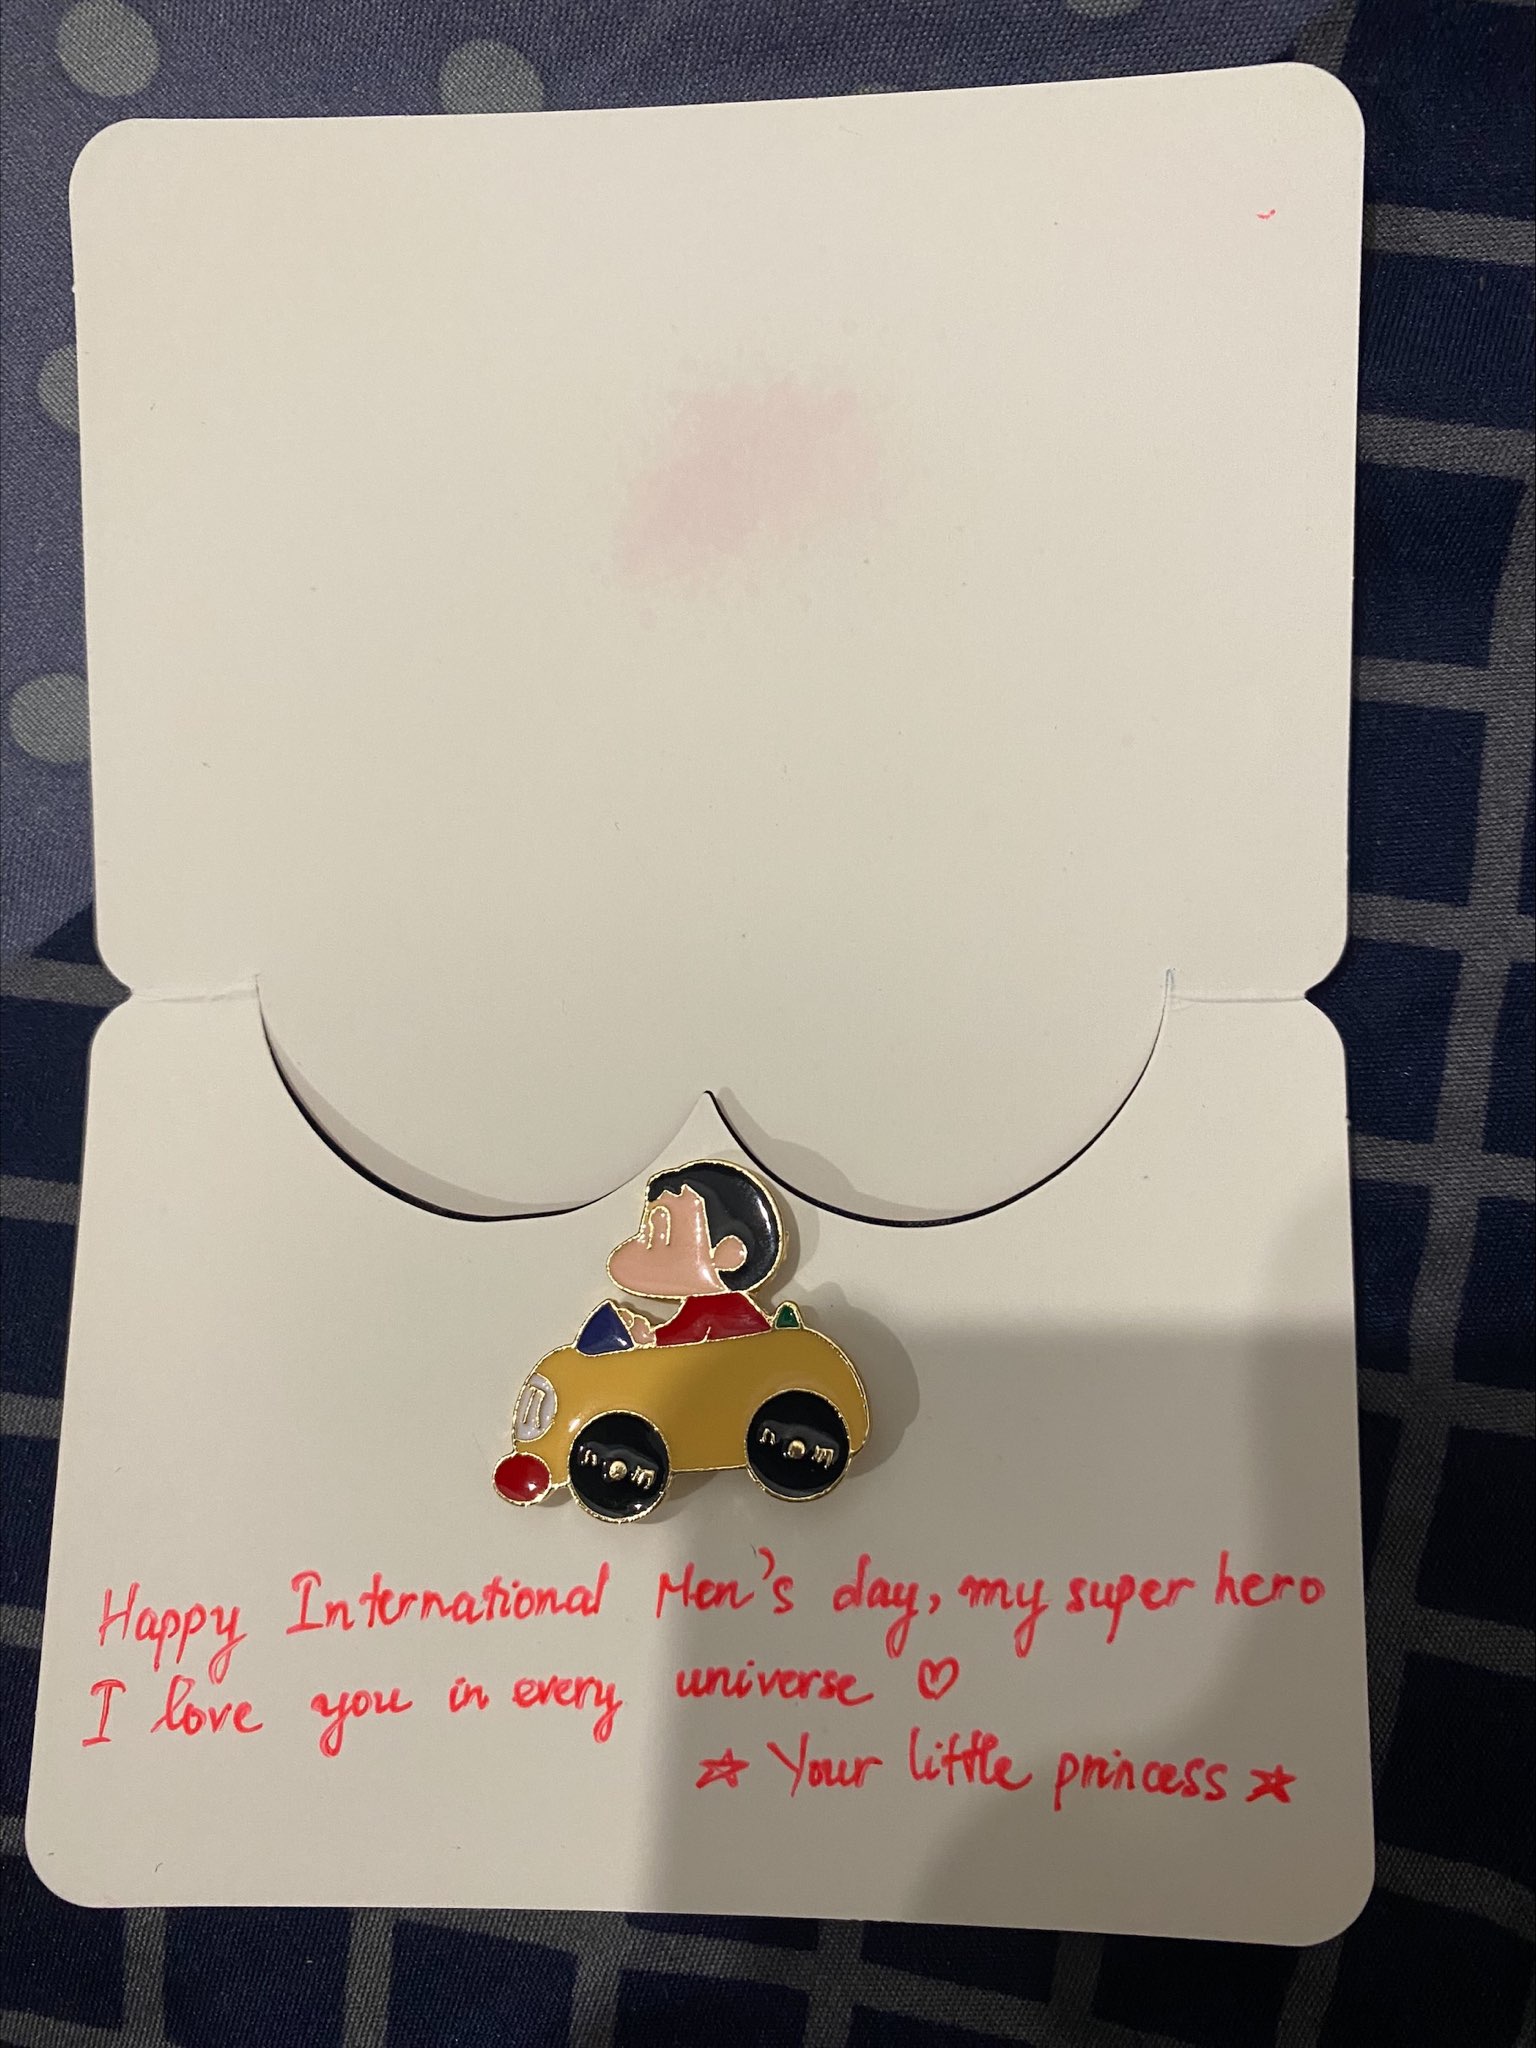 Happy International Men's day, my super hero
I love you in every universe ♡
☆ Your little princess ☆